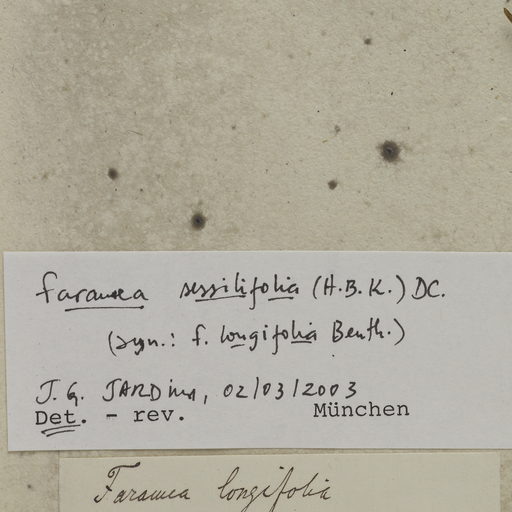 faramea sessilifolia (H.B.K.) DC.
(syn.: f. longifolia Benth.)
J. G. JARDim, 02/03/2003
Det. - rev. München
Faramea longifolia